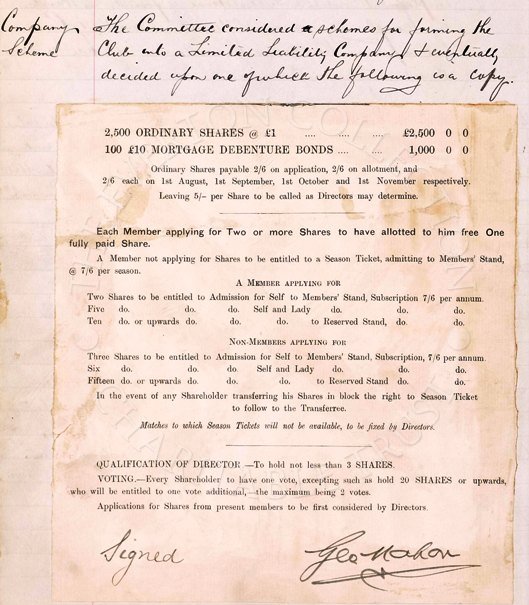 Company The Committee considered a schemes for forming the
Scheme Club into a Limited Liability Company & eventually
decided upon one of which the following is a copy.
2,500 ORDINARY SHARES @ £1 .... .... .... £2,500 0 0
100 £10 MORTGAGE DEBENTURE BONDS .... .... 1,000 0 0
Ordinary Shares payable 2/6 on application, 2/6 on allotment, and
2/6 each on 1st August, 1st September, 1st October and 1st November respectively.
Leaving 5/- per Share to be called as Directors may determine.
Each Member applying for Two or more Shares to have allotted to him free One
fully paid Share.
A Member not applying for Shares to be entitled to a Season Ticket, admitting to Members' Stand,
@ 7/6 per season.
A MEMBER APPLYING FOR
Two Shares to be entitled to Admission for Self to Members' Stand, Subscription 7/6 per annum.
Five do. do. do. Self and Lady do. do. do.
Ten do. or upwards do. do. do. to Reserved Stand, do. do.
NON-MEMBERS APPLYING FOR
Three Shares to be entitled to Admission for Self to Members' Stand, Subscription, 7/6 per annum.
Six do. do. do. Self and Lady do. do. do.
Fifteen do. or upwards do. do. do. to Reserved Stand do. do.
In the event of any Shareholder transferring his Shares in block the right to Season Ticket
to follow to the Transferree.
Matches to which Season Tickets will not be available, to be fixed by Directors.
QUALIFICATION OF DIRECTOR.—To hold not less than 3 SHARES.
VOTING.—Every Shareholder to have one vote, excepting such as hold 20 SHARES or upwards,
who will be entitled to one vote additional,—the maximum being 2 votes.
Applications for Shares from present members to be first considered by Directors.
Signed Geo Mahon